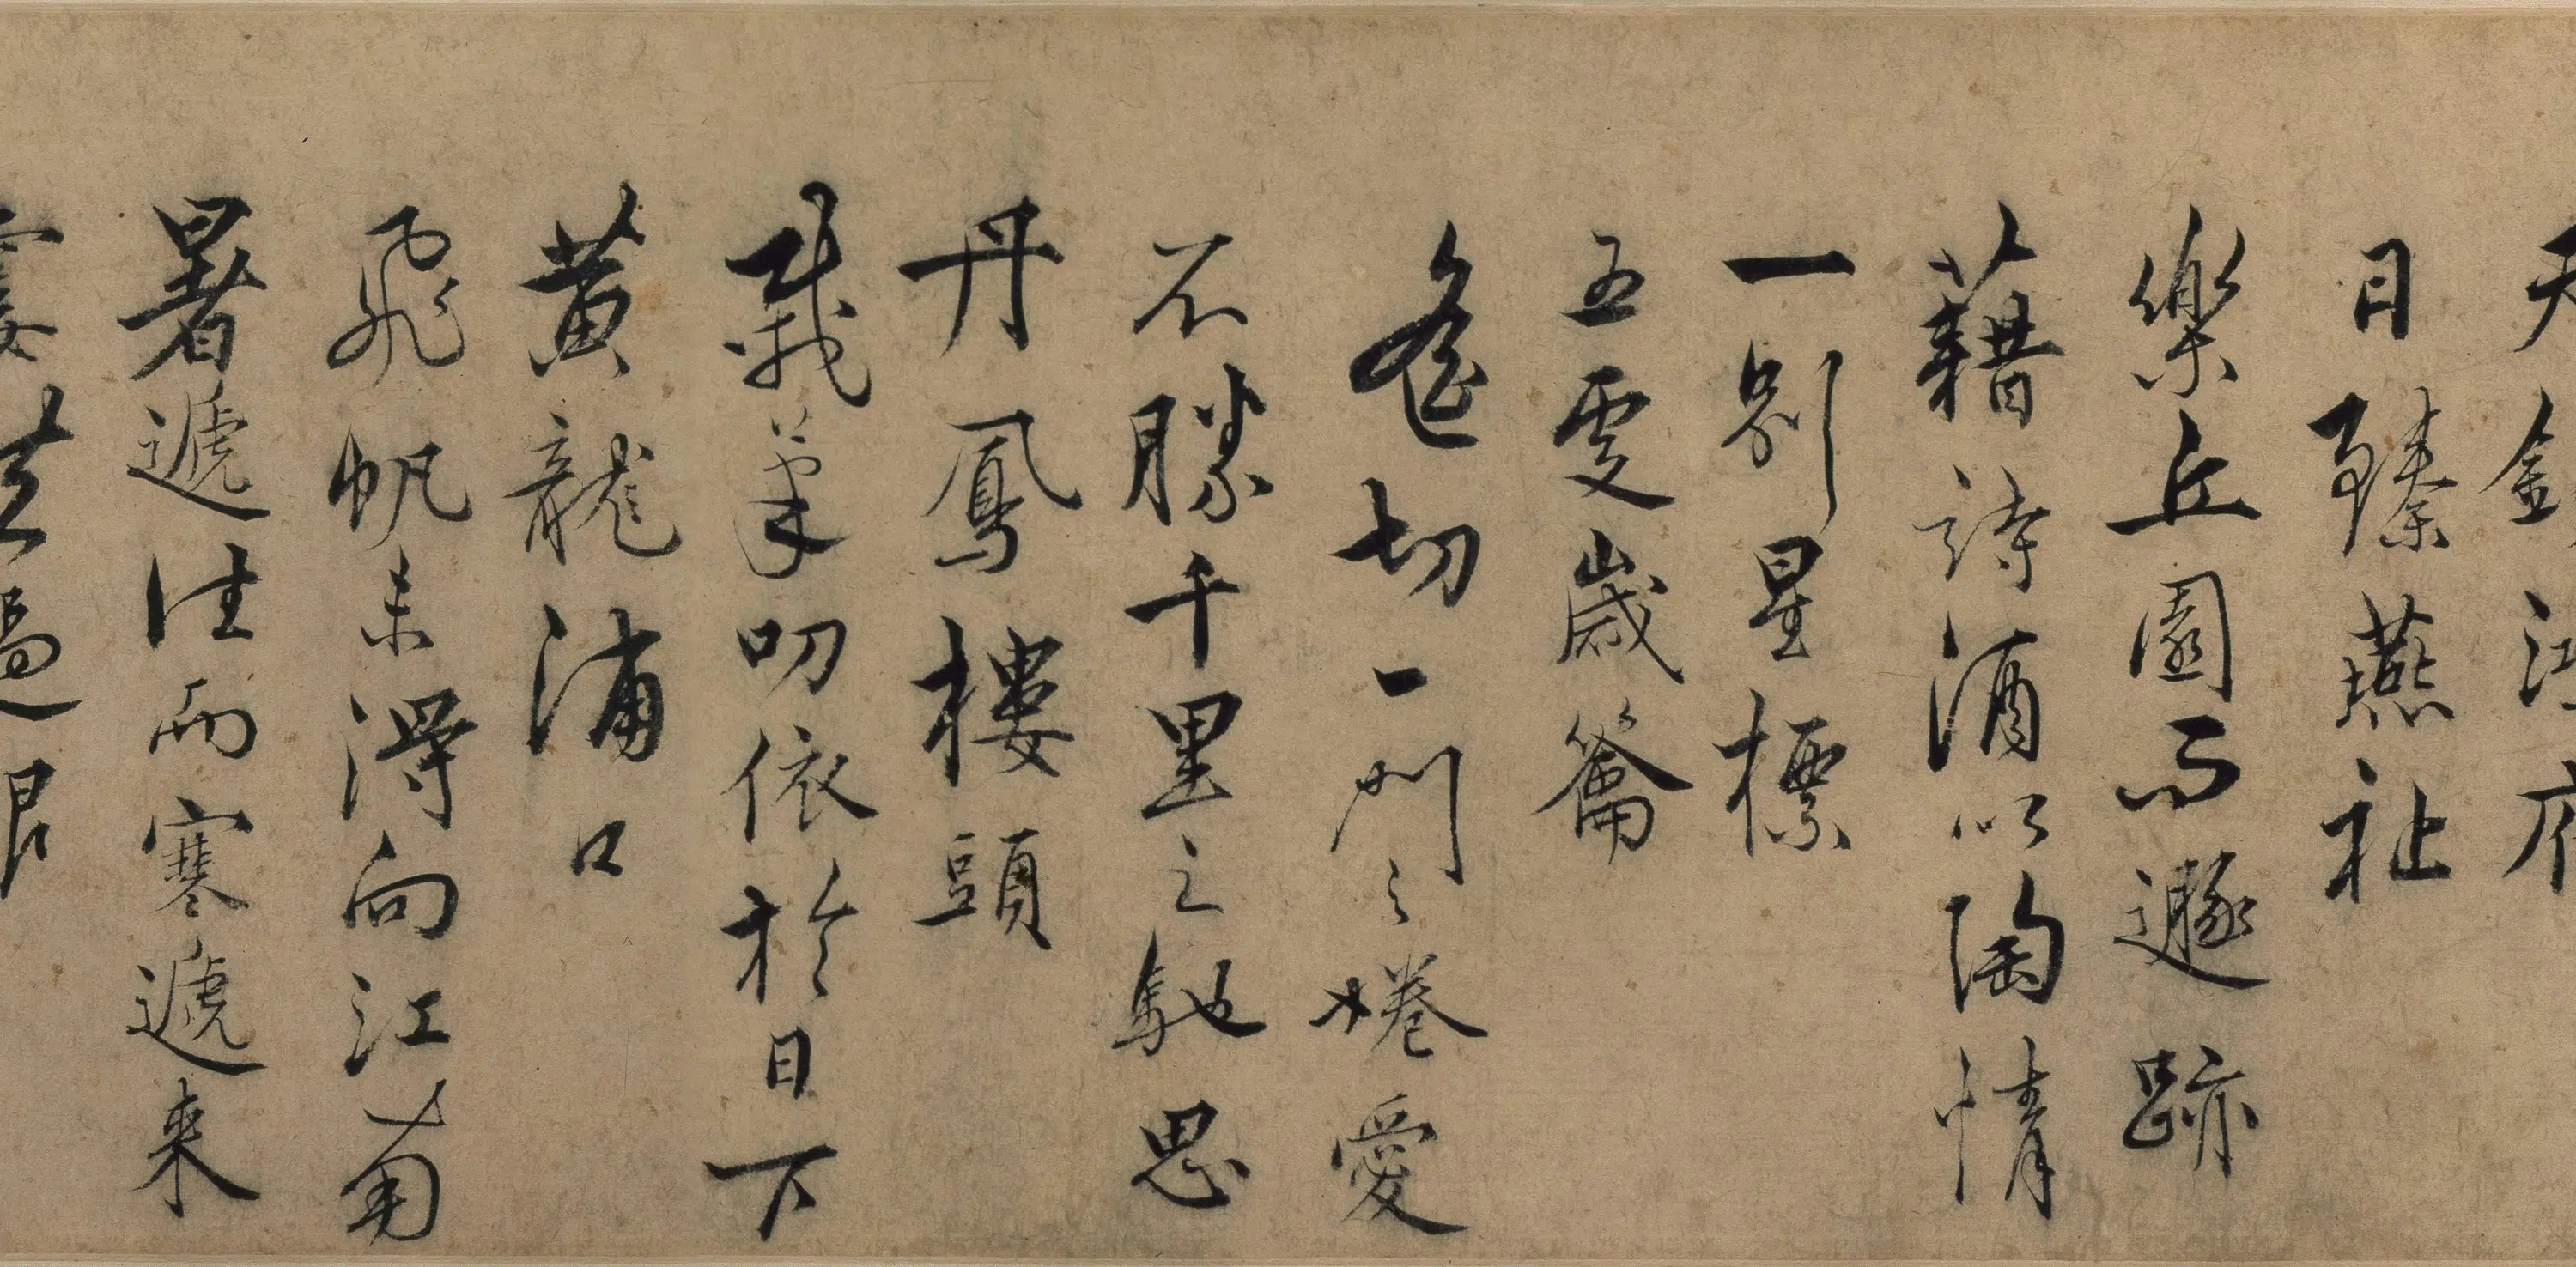 天 錫 江 府
日臻燕祉
樂丘園而遯跡
藉詩酒以陶情
一別星標
五更歲籥
愙切一門之惓愛
不勝千里之馳思
丹鳳樓頭
載筆叨依於日下
黃龍浦口
飛帆未得向江南
暑遞往而寒遞来